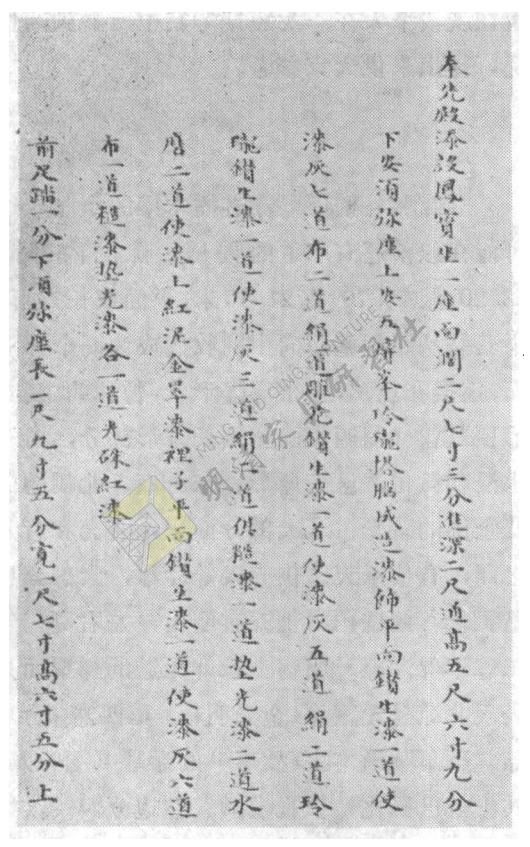 奉先殿添設鳳寶坐一座面濶二尺七寸三分進深二尺通高五尺六寸九分
下安須弥座上安九屏峯玲瓏搭腦成造漆飾平面鑽生漆一道使
漆灰七道布二道絹道雕花鑽生漆一道使漆灰五道絹二道玲
瓏鑽生漆一道使漆灰三道絹一道俱糙漆一道墊光漆二道水
磨二道使漆上紅泥金罩漆裡子平面鑽生漆一道使漆灰六道
布一道糙漆墊光漆各一道光硃紅漆
前足踏一分下須弥座長一尺九寸五分寬一尺七寸高六寸五分上
MING AND QING FURNITURE
明清家具研習社